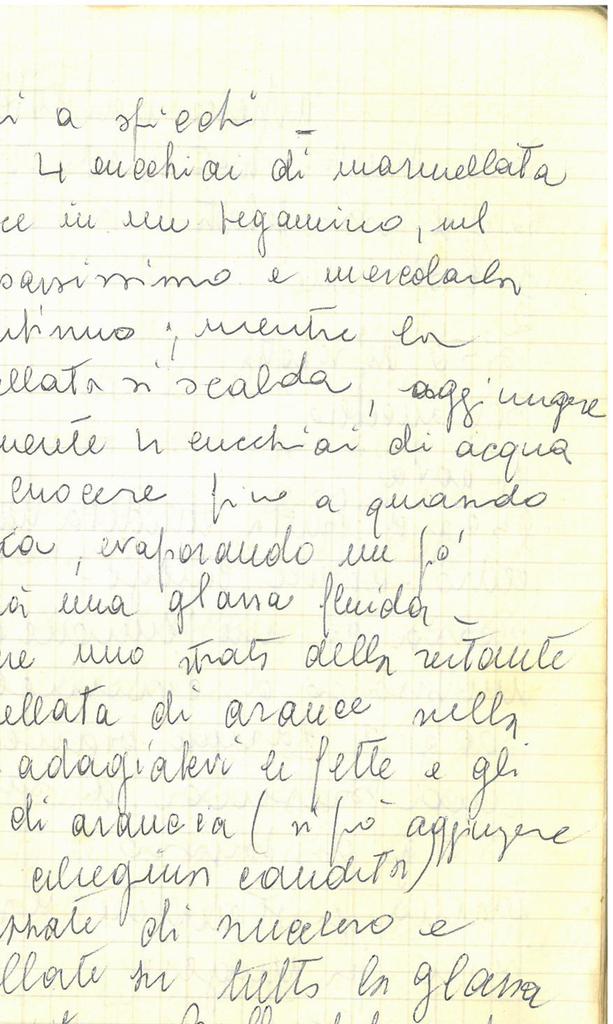 i a spicchi -
4 cucchiai di marmellata
ce in un tegamino, sul
bassissimo e mescolarla
ntinuo; mentre la
ellata si scalda, aggiungere
mente 4 cucchiai di acqua
cuocere fino a quando
ta, evaporando un pò
rà una glassa fluida -
re uno strato della restante
ellata di arance nella
adagiatevi le fette e gli
di arancia (si può aggiungere
ciliegina candita)
di zucchero e
llate su tutto la glassa